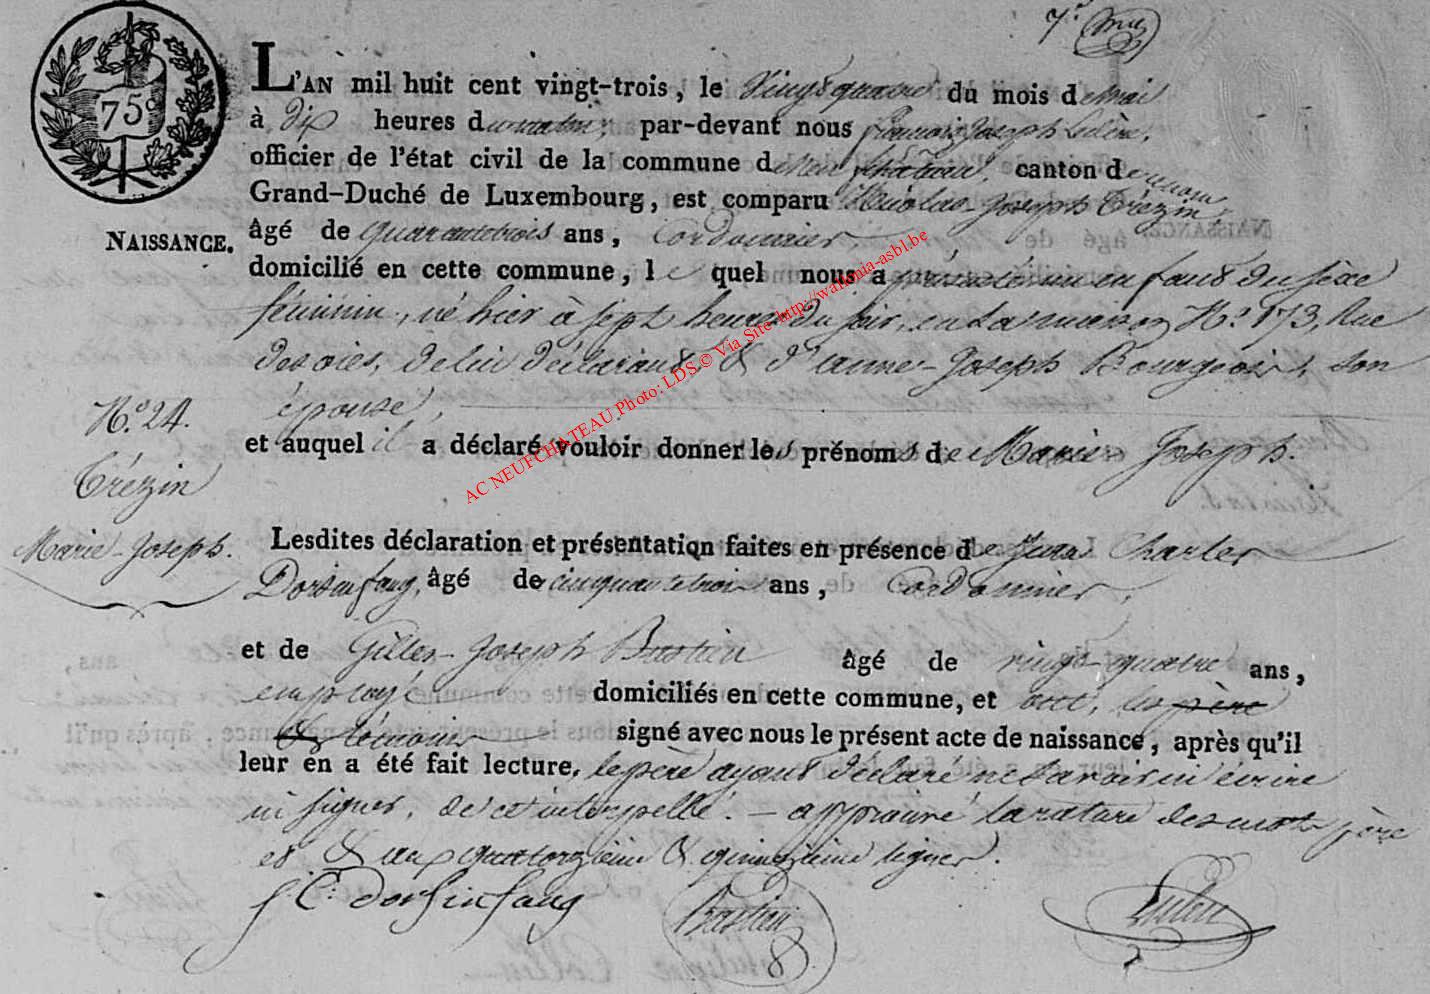 7.e
75c
L'AN mil huit cent vingt-trois, le vingt quatre du mois de Mai
à dix heures du matin, par-devant nous françois Joseph
officier de l'état civil de la commune de Neufchâteau, canton de
Grand-Duché de Luxembourg, est comparu Nicolas-Joseph Trézin,
NAISSANCE.
âgé de quarantetrois ans, Cordonnier,
domicilié en cette commune, lequel nous a présenté un enfant du sexe
féminin, né hier à sept heures du soir, en la maison N.o 173, Rue
des oies, de lui déclarant & d'anne-Joseph Bourgeois, son
épouse,
N.o 24.
et auquel il a déclaré vouloir donner les prénoms de Marie Joseph.
Trézin
Marie-Joseph.
Lesdites déclaration et présentation faites en présence de Jean Charles
Dorsinfang, âgé de cinquantetrois ans, Cordonnier,
et de Gilles-Joseph Bastien âgé de vingt-quatre ans,
employé domiciliés en cette commune, et ont, les père
& témoins signé avec nous le présent acte de naissance, après qu'il
leur en a été fait lecture, le père ayant déclaré ne savoir ni écrire
ni signer, de ce interpellé. — approuvé la rature des mots père
et & aux quatorzième & quinzième lignes.
J C: dorsinfang
Bastien
AC NEUFCHATEAU Photo: LDS © Via Site http://wallonia-asbl.be